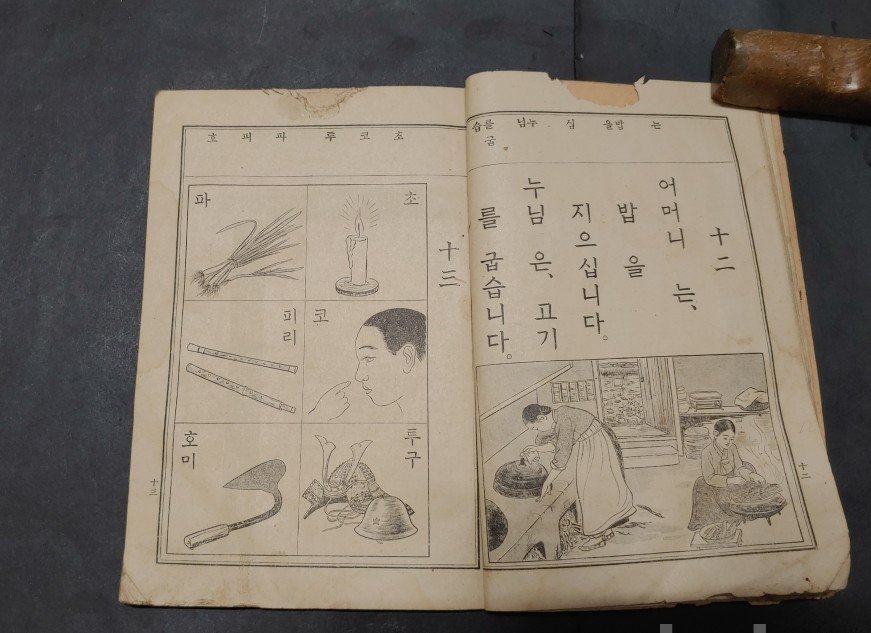 는 밥을 십 누님 를굽습
十二
어머니 는、
밥 을
지으십니다。
누님 은、고기
를 굽습니다。
十二
초 코 투 파 피 호
十三
초
파
코
피리
투구
호미
十三